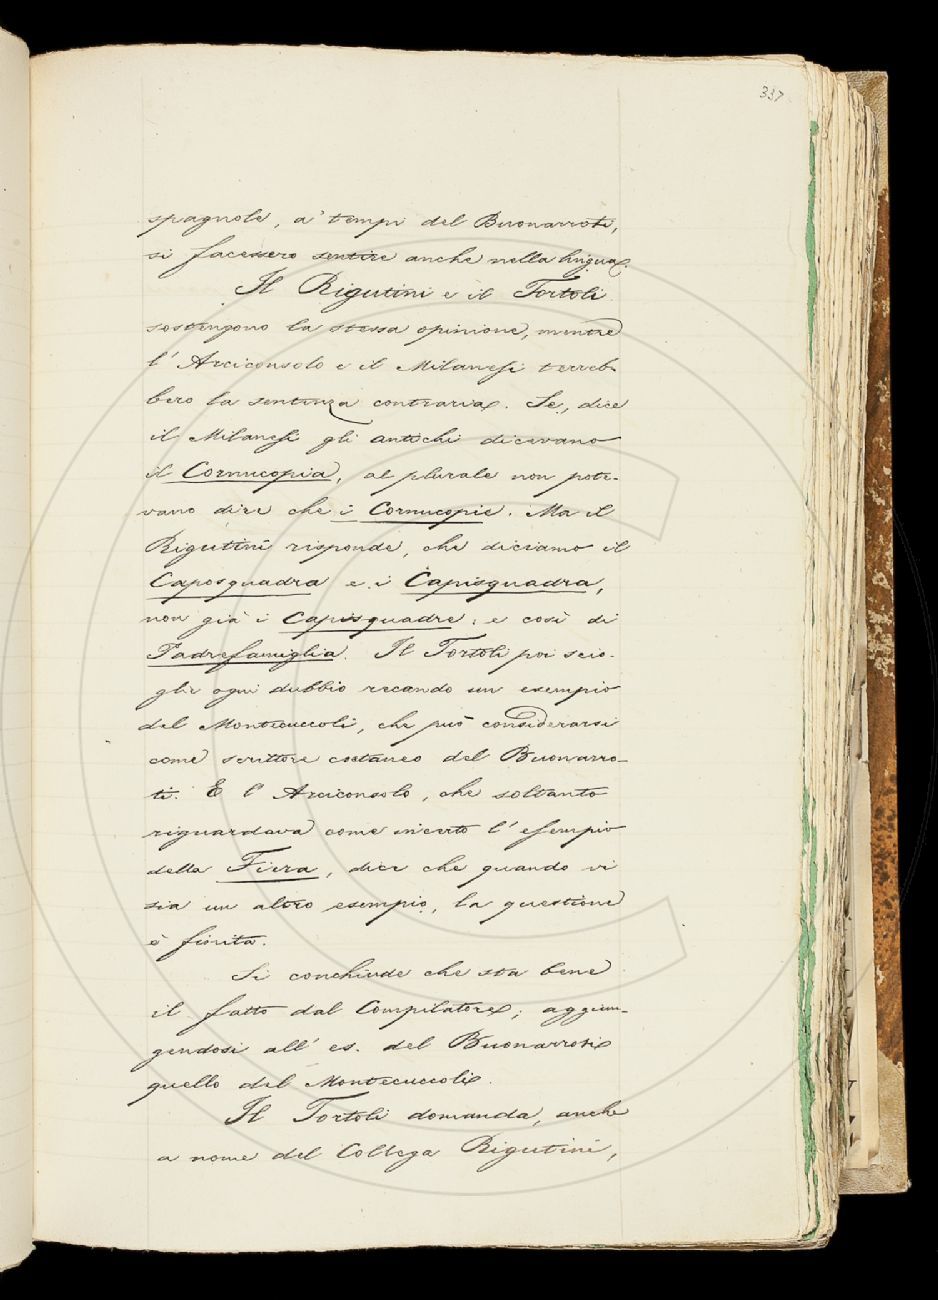 337
spagnole, a' tempi del Buonarroti,
si facessero sentire anche nella lingua.
Il Rigutini e il Tortoli
sostengono la stessa opinione, mentre
l' Arciconsolo e il Milanesi terreb-
bero la sentenza contraria. Se, dice
il Milanesi gli antichi dicevano
il Cornucopia, al plurale non pote-
vano dire che i Cornucopie. Ma il
Rigutini risponde, che diciamo il
Caposquadra e i Capisquadra,
non già i Capisquadre; e così di
Padrefamiglia. Il Tortoli poi scio-
glie ogni dubbio recando un esempio
del Montecuccoli, che può considerarsi
come scrittore coetaneo del Buonarro-
ti. E l' Arciconsolo, che soltanto
riguardava come incerto l' esempio
della Fiera, dice che quando vi
sia un altro esempio, la questione
è finita.
Si conchiude che sta bene
il fatto dal Compilatore; aggiun-
gendosi all' es. del Buonarroti
quello del Montecuccoli.
Il Tortoli domanda, anche
a nome del Collega Rigutini,